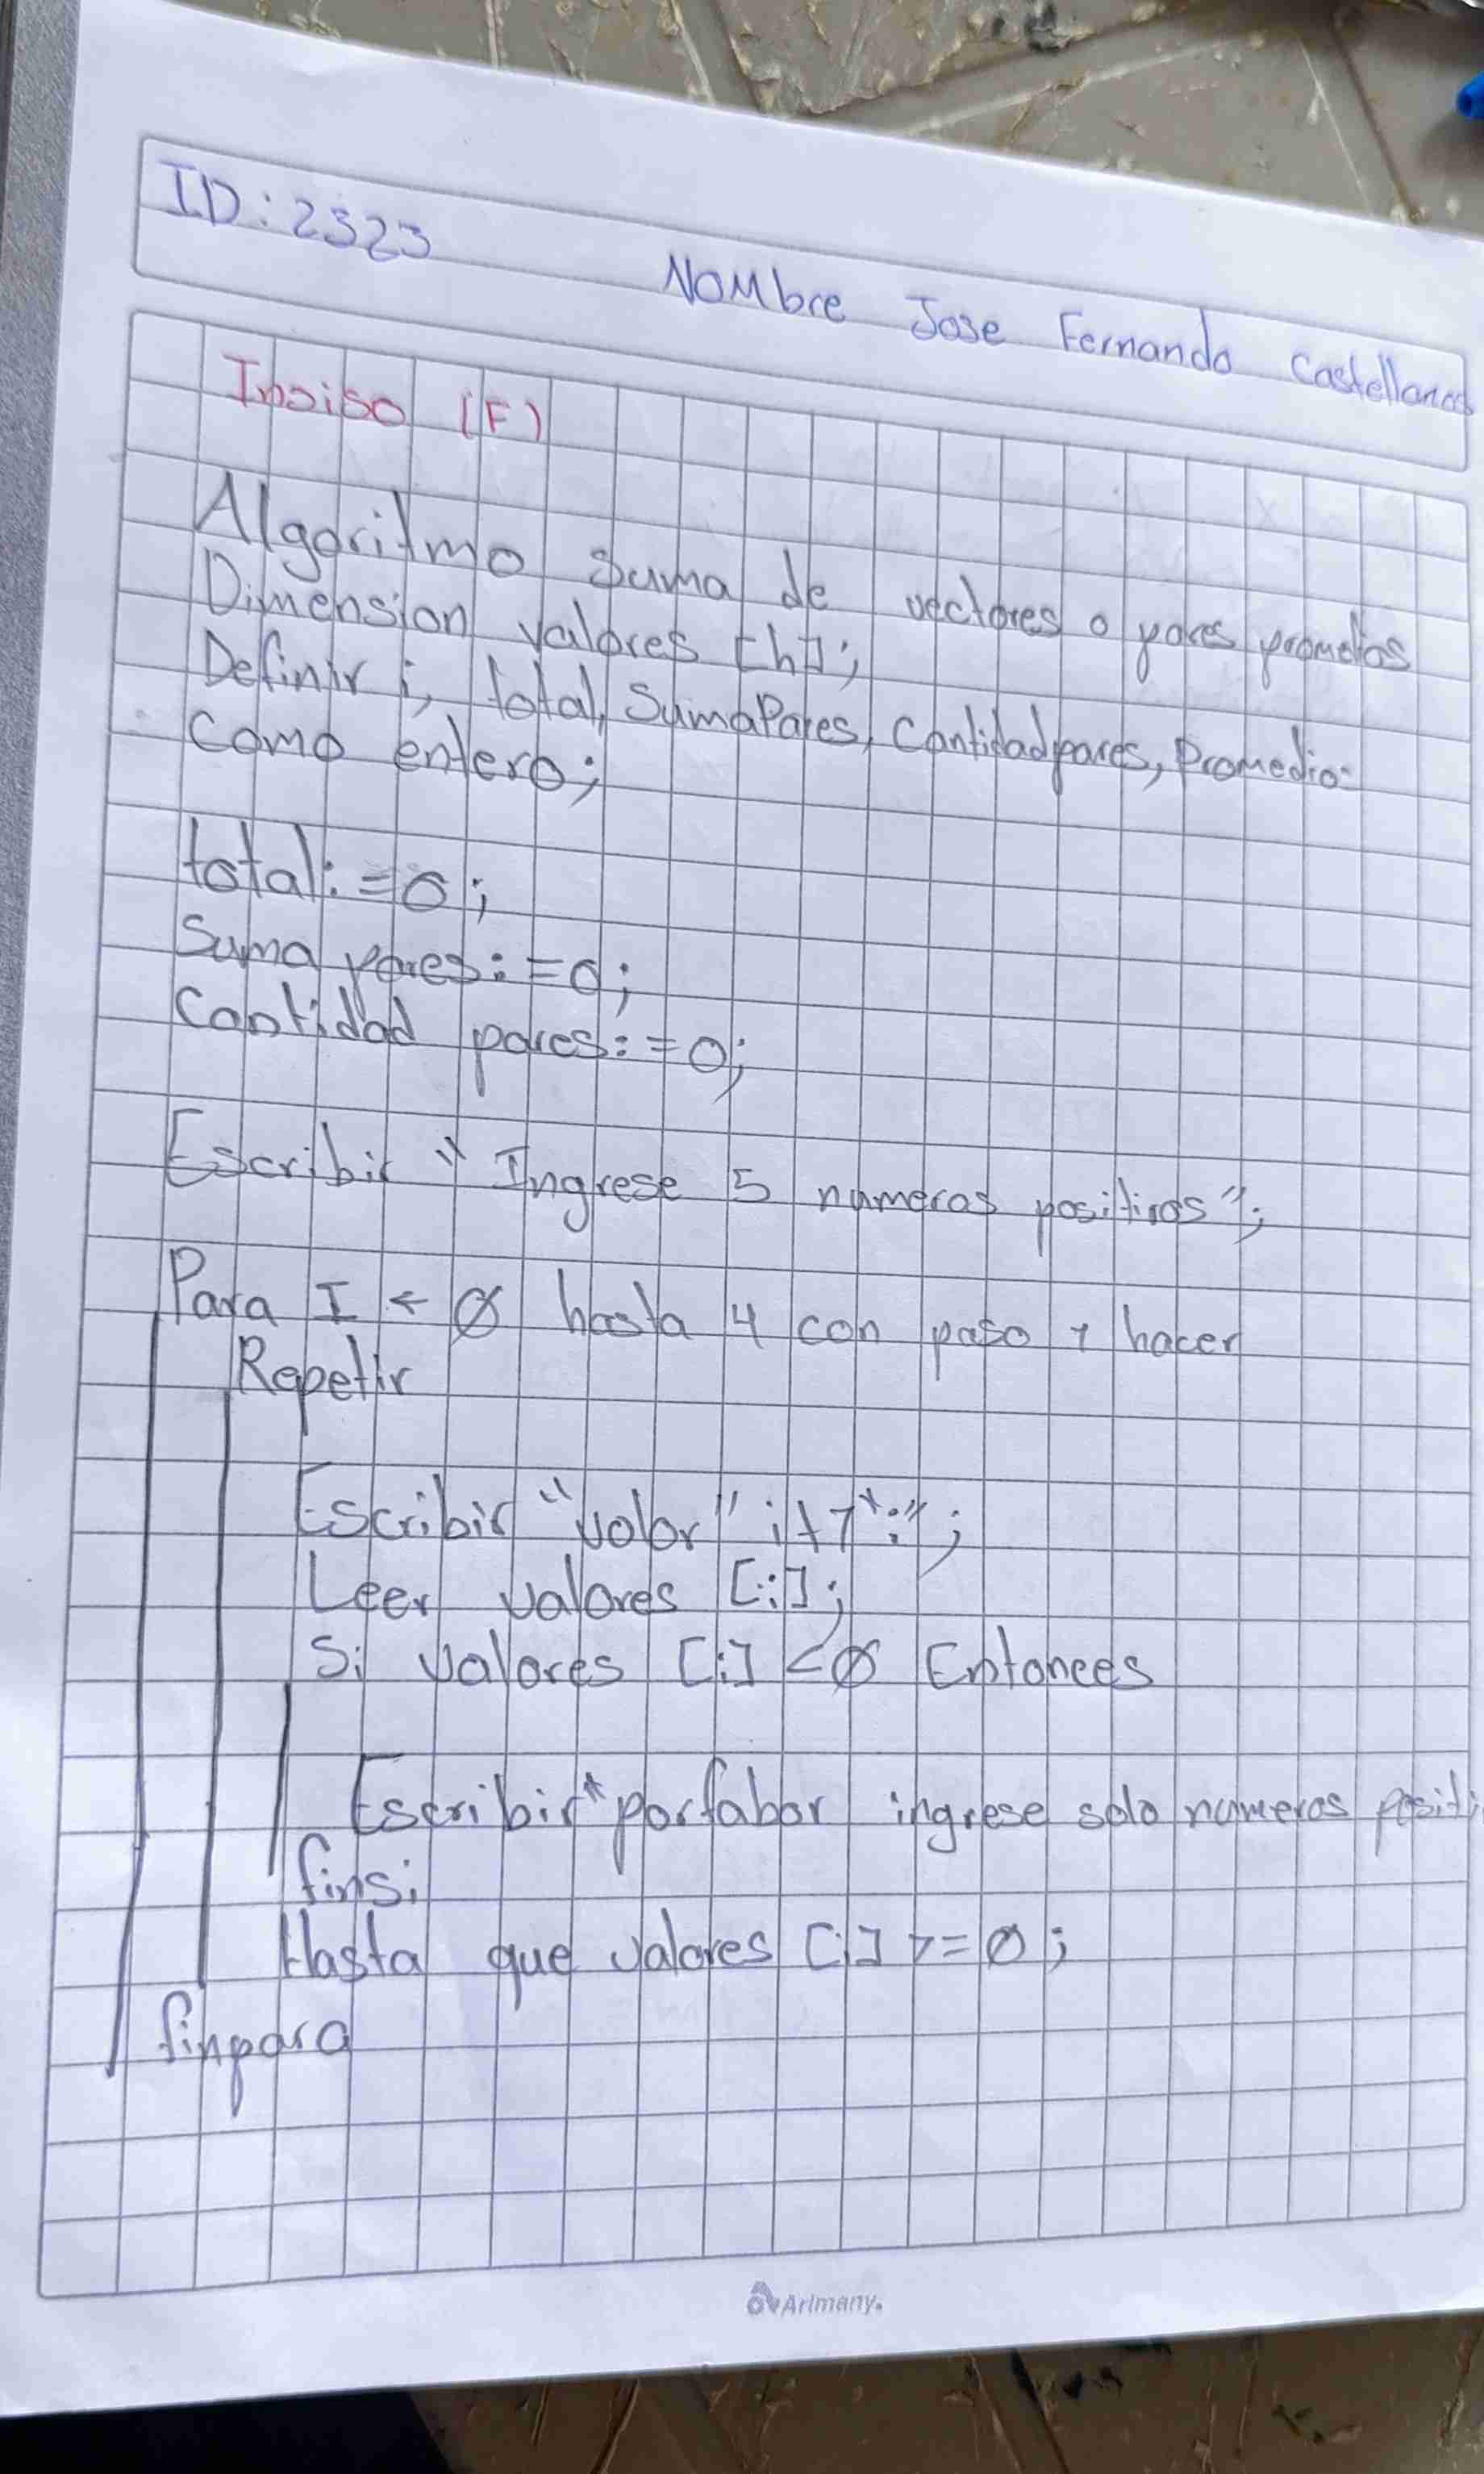 ID: 2323
NOMbre Jose Fernando Castellanos
Insiso (F)
Algoritmo suma de vectores o pares promedios
Dimension valores [h];
Definir i, total, SumaPares, Cantidadpares, Promedio
Como entero;
total:=0;
Suma pares:=0;
Cantidad pares:=0;
Escribir "Ingrese 5 numeros positivos";
Para I ← 0 hasta 4 con paso 1 hacer
Repetir
Escribir "valor" i+1":";
Leer valores [i];
Si valores [i] <0 Entonces
Escribir "porfabor ingrese solo numeros positi
finsi
Hasta que valores [i] >=0;
finpara
Arimany.